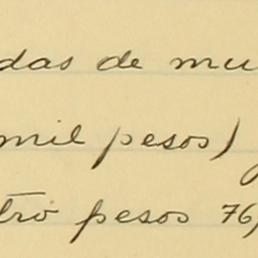 das de mu
mil pesos)
tro pesos 76